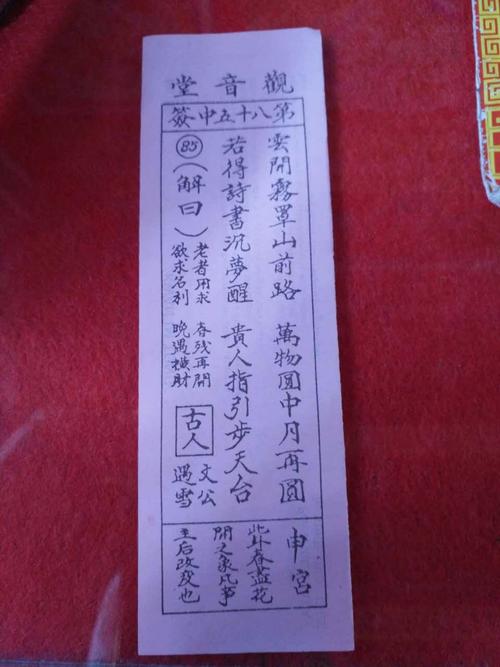 觀音堂
第八十五中簽
雲開霧罩山前路
萬物圓中月再圓
若得詩書沉夢醒
貴人指引步天台
85
（解曰）
老者用求
欲求名利
春残再開
晚遇横財
古人
文公
遇雪
申宮
此卦春盡花
開之象凡事
主后改変也